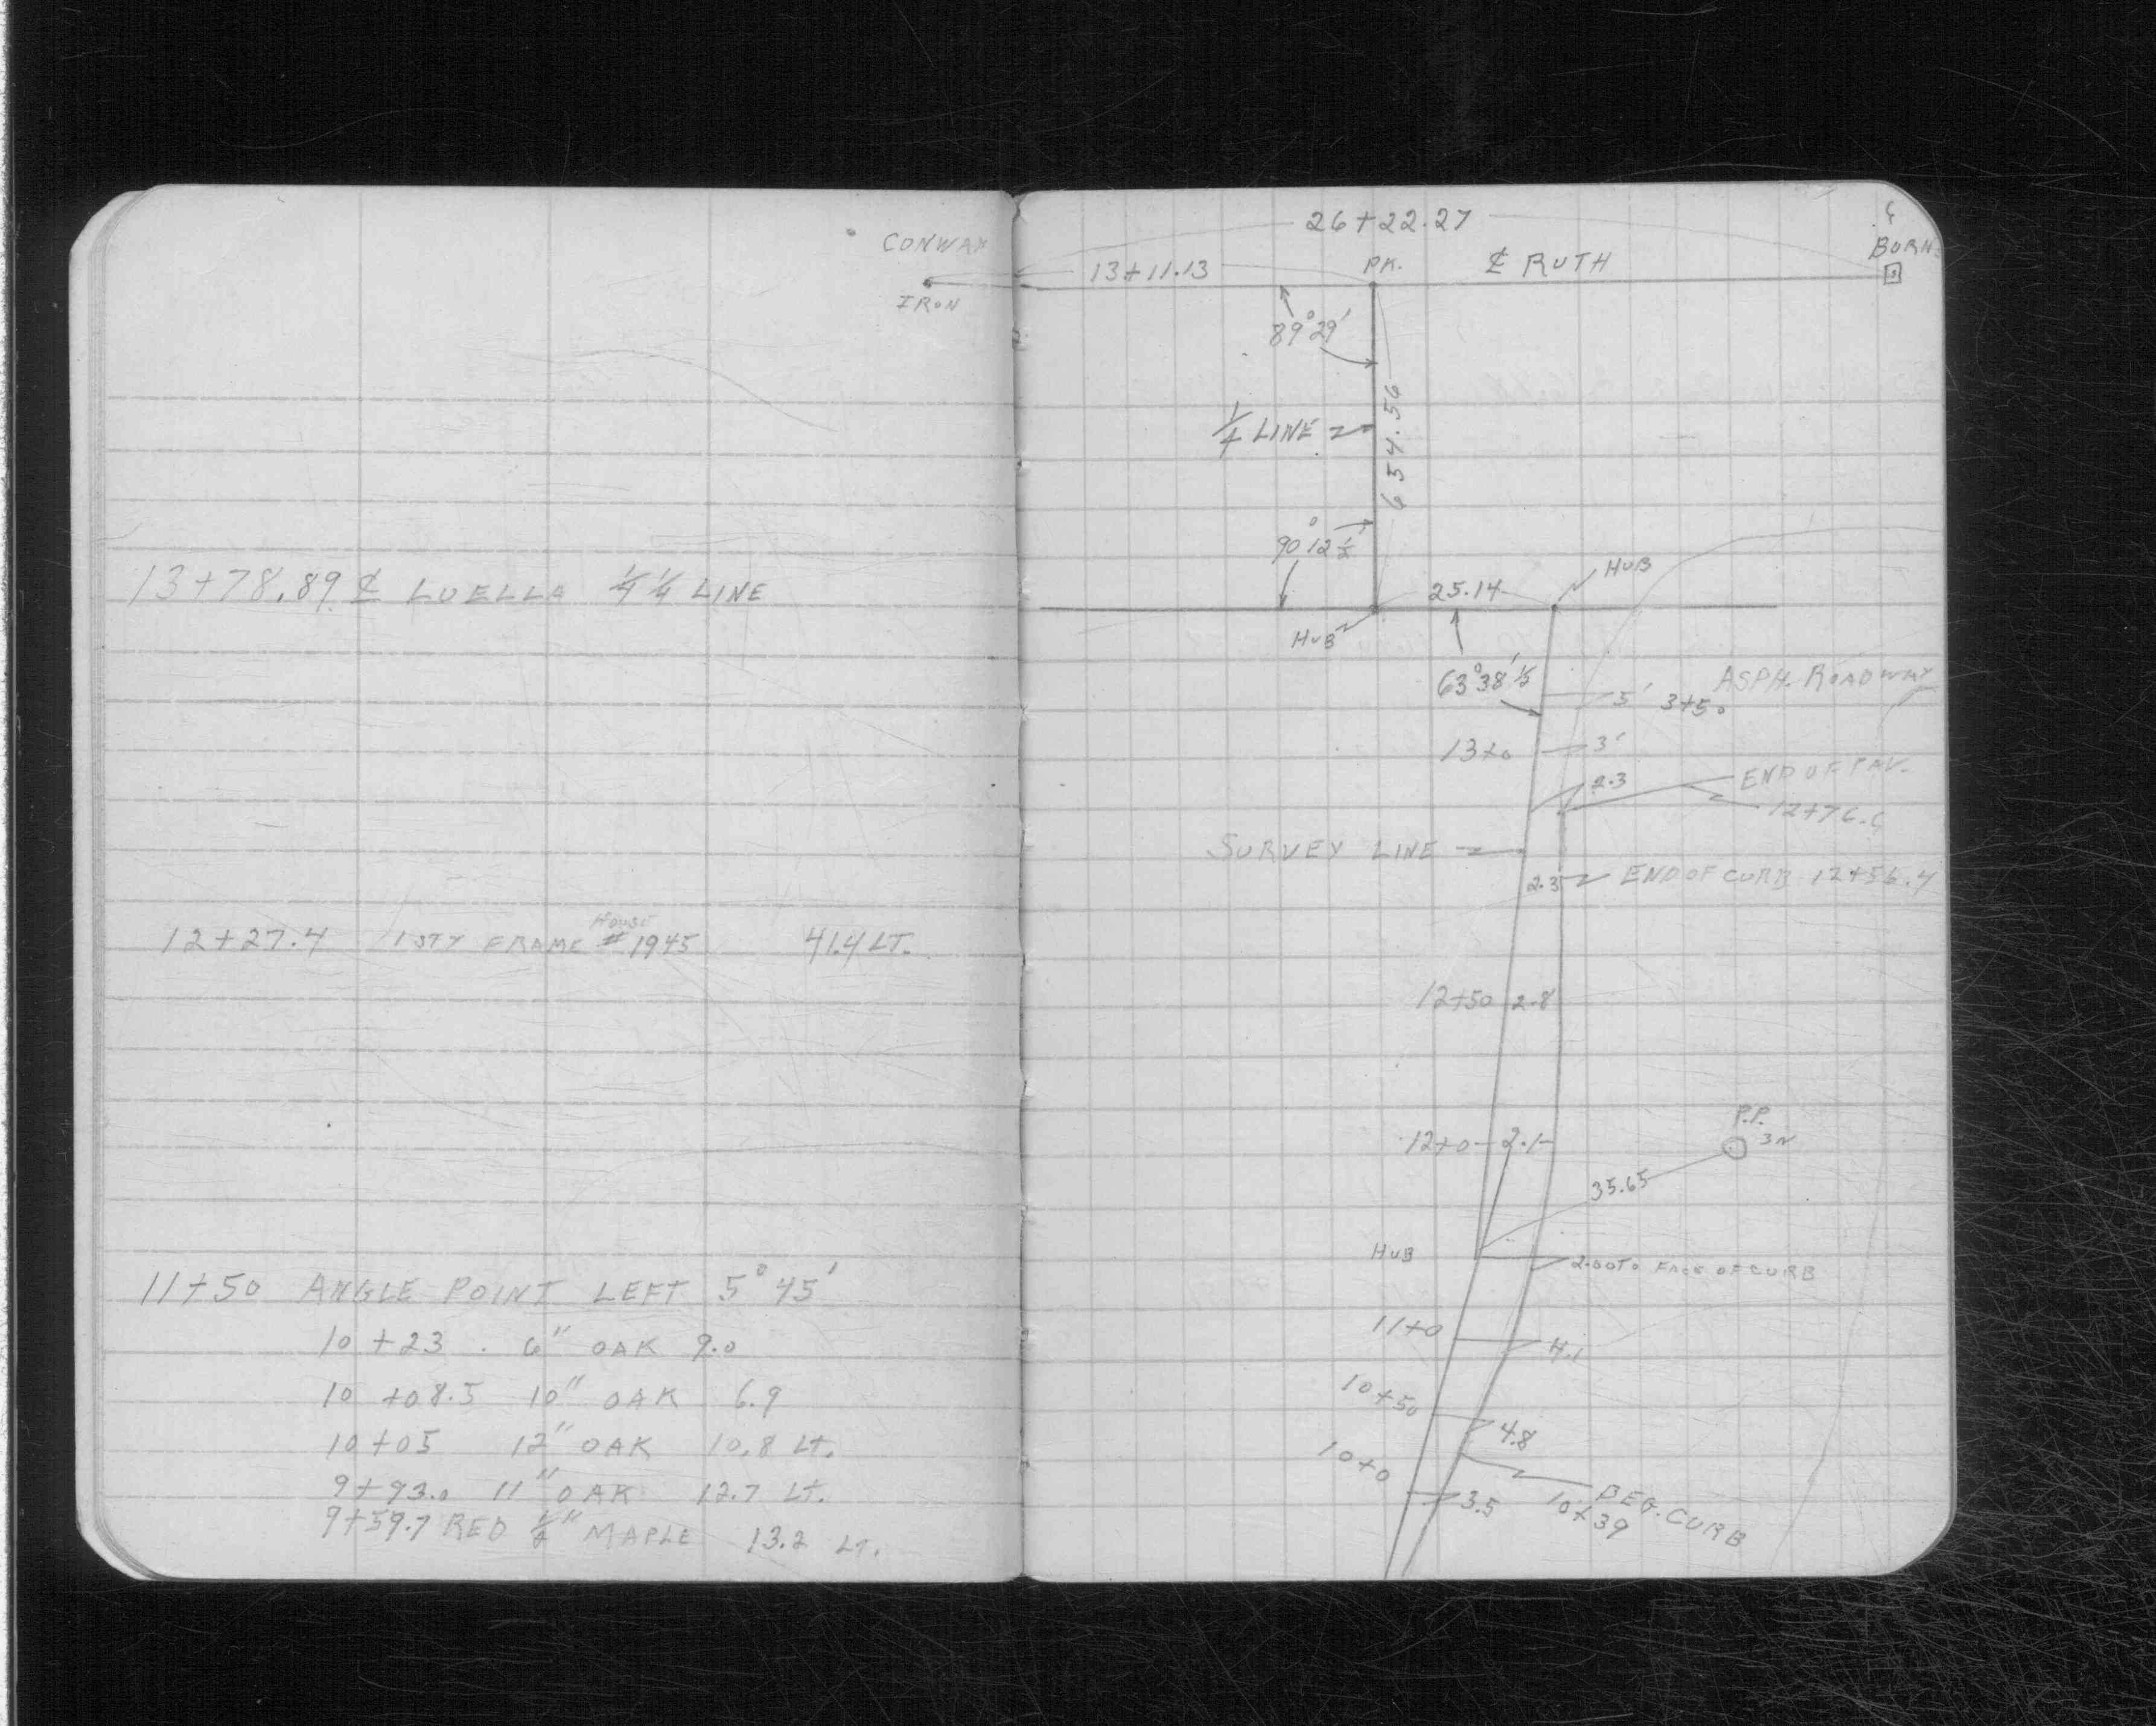 CONWAY
IRON
13+78.89 ℄ LUELLA 1/4 1/4 LINE
HOUSE
12+27.4 1 STY FRAME # 1945 41.4 LT.
11+50 ANGLE POINT LEFT 5°45'
10+23 . 6" OAK 9.0
10+08.5 10" OAK 6.9
10+05 12" OAK 10.8 LT.
9+93.0 11" OAK 12.7 LT.
9+59.7 RED 1/2" MAPLE 13.2 LT.
26+22.27
BURNS
13+11.13 PK. ℄ RUTH
89°29'
1/4 LINE
654.56
90°12 1/2'
25.14 HUB
HUB
63°38' 1/2
ASPH. ROADWAY
5' 3+50
13+0 3'
2.3
END OF PAV.
12+76.
SURVEY LINE
2.3 END OF CURB 12+56.4
12+50 2.8
P.P.
3N
12+0 2.1
35.65
HUB
2.00 TO FACE OF CURB
11+0 4.1
10+50 4.8
10+0 3.5
BEG. CURB
10+39